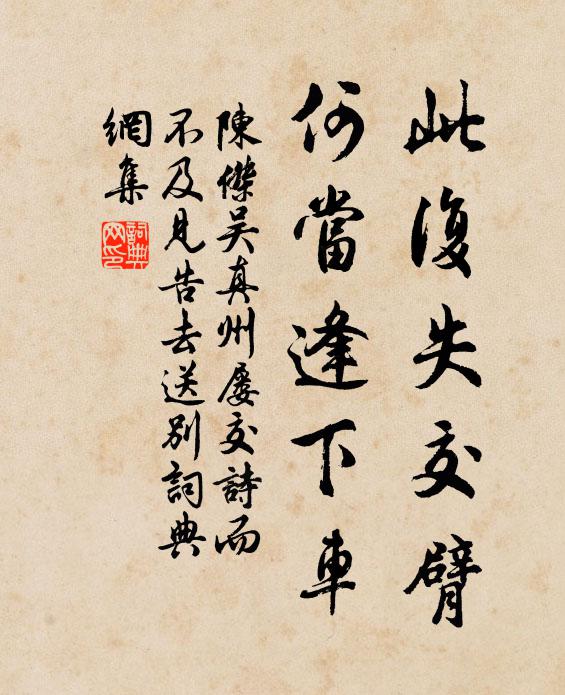 此復失交臂
何當逢下車
陳傑吳真州屡交詩而
不及見告去送別詞典
網集
詞典
网印